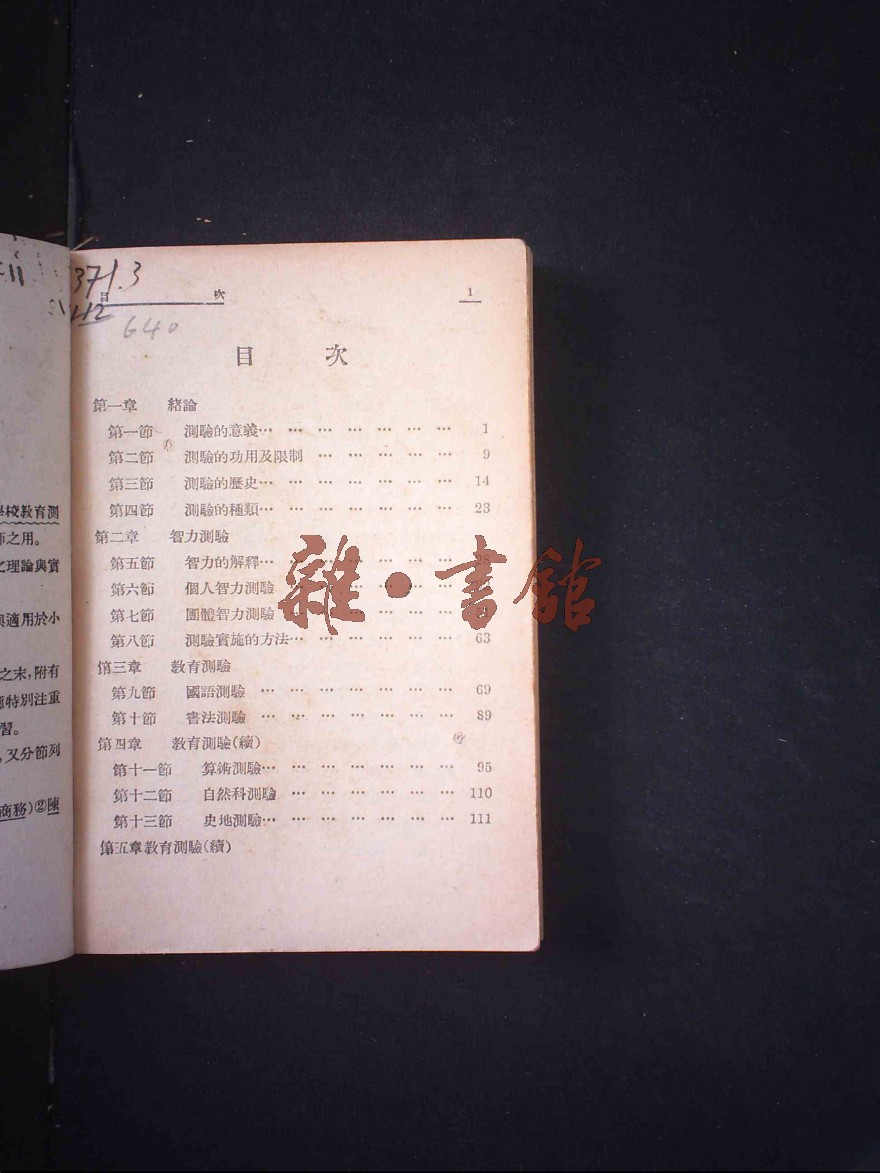 學校教育測
師之用。
之理論與實
與適用於小
之末,附有
應特別注重
習。
,又分節列
商務)②陳
371.3
640
目 次 1
目 次
第一章 緒論
第一節 測驗的意義… … … … … … … 1
第二節 測驗的功用及限制 … … … … … 9
第三節 測驗的歷史… … … … … … … 14
第四節 測驗的種類… … … … … … … 23
第二章 智力測驗
第五節 智力的解釋… … … … … … … 28
第六節 個人智力測驗
第七節 團體智力測驗
第八節 測驗實施的方法… … … … … … 63
第三章 教育測驗
第九節 國語測驗 … … … … … … … 69
第十節 書法測驗 … … … … … … … 89
第四章 教育測驗(續)
第十一節 算術測驗… … … … … … … 95
第十二節 自然科測驗 … … … … … … 110
第十三節 史地測驗… … … … … … … 111
第五章教育測驗(續)
雜·書館